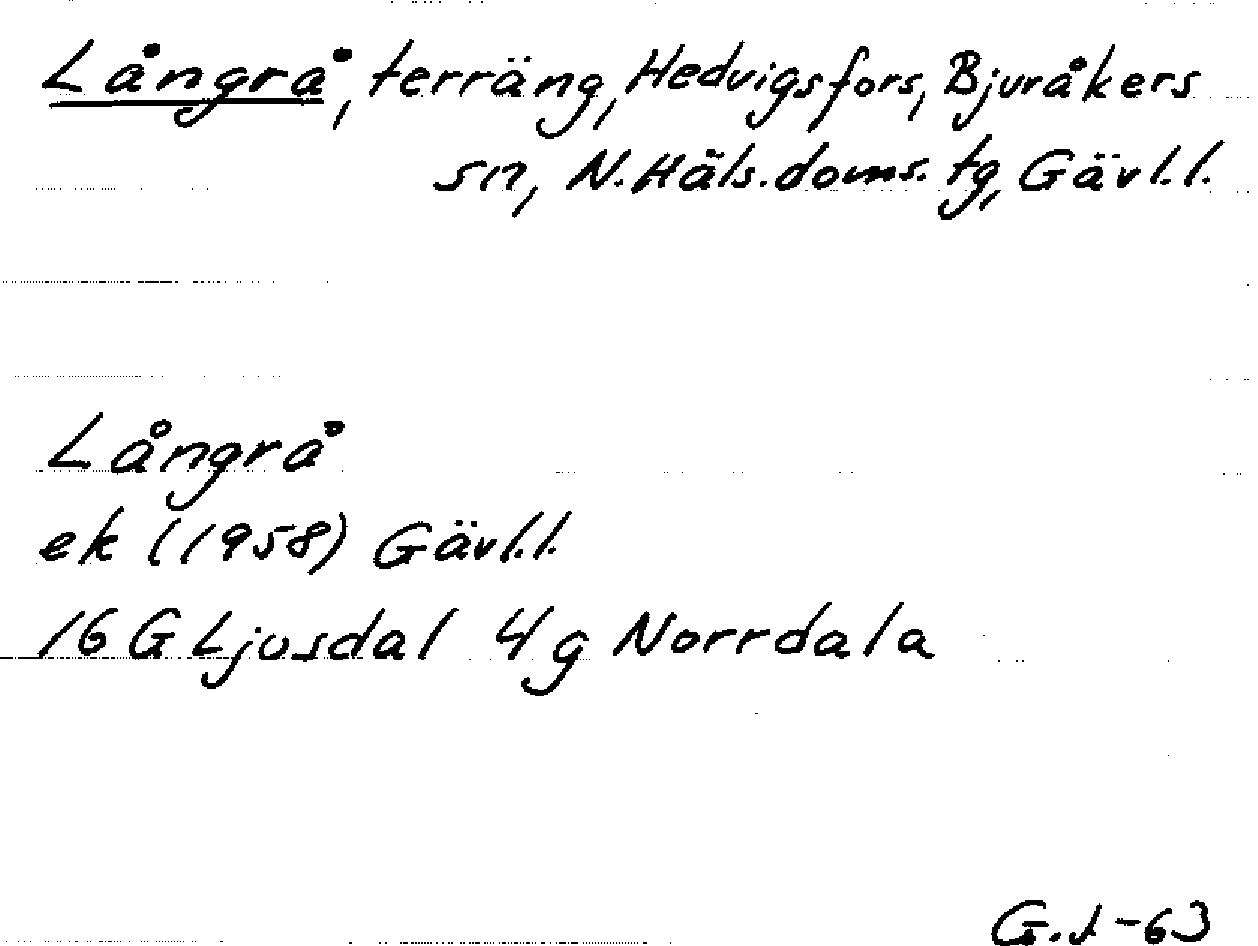 Långrå, terräng, Hedvigsfors, Bjuråkers
sn, N. Häls. doms. tg, Gävl. l.
Långrå
ek (1958) Gävl. l.
16 G Ljusdal 4 g Norrdala
G.J-63